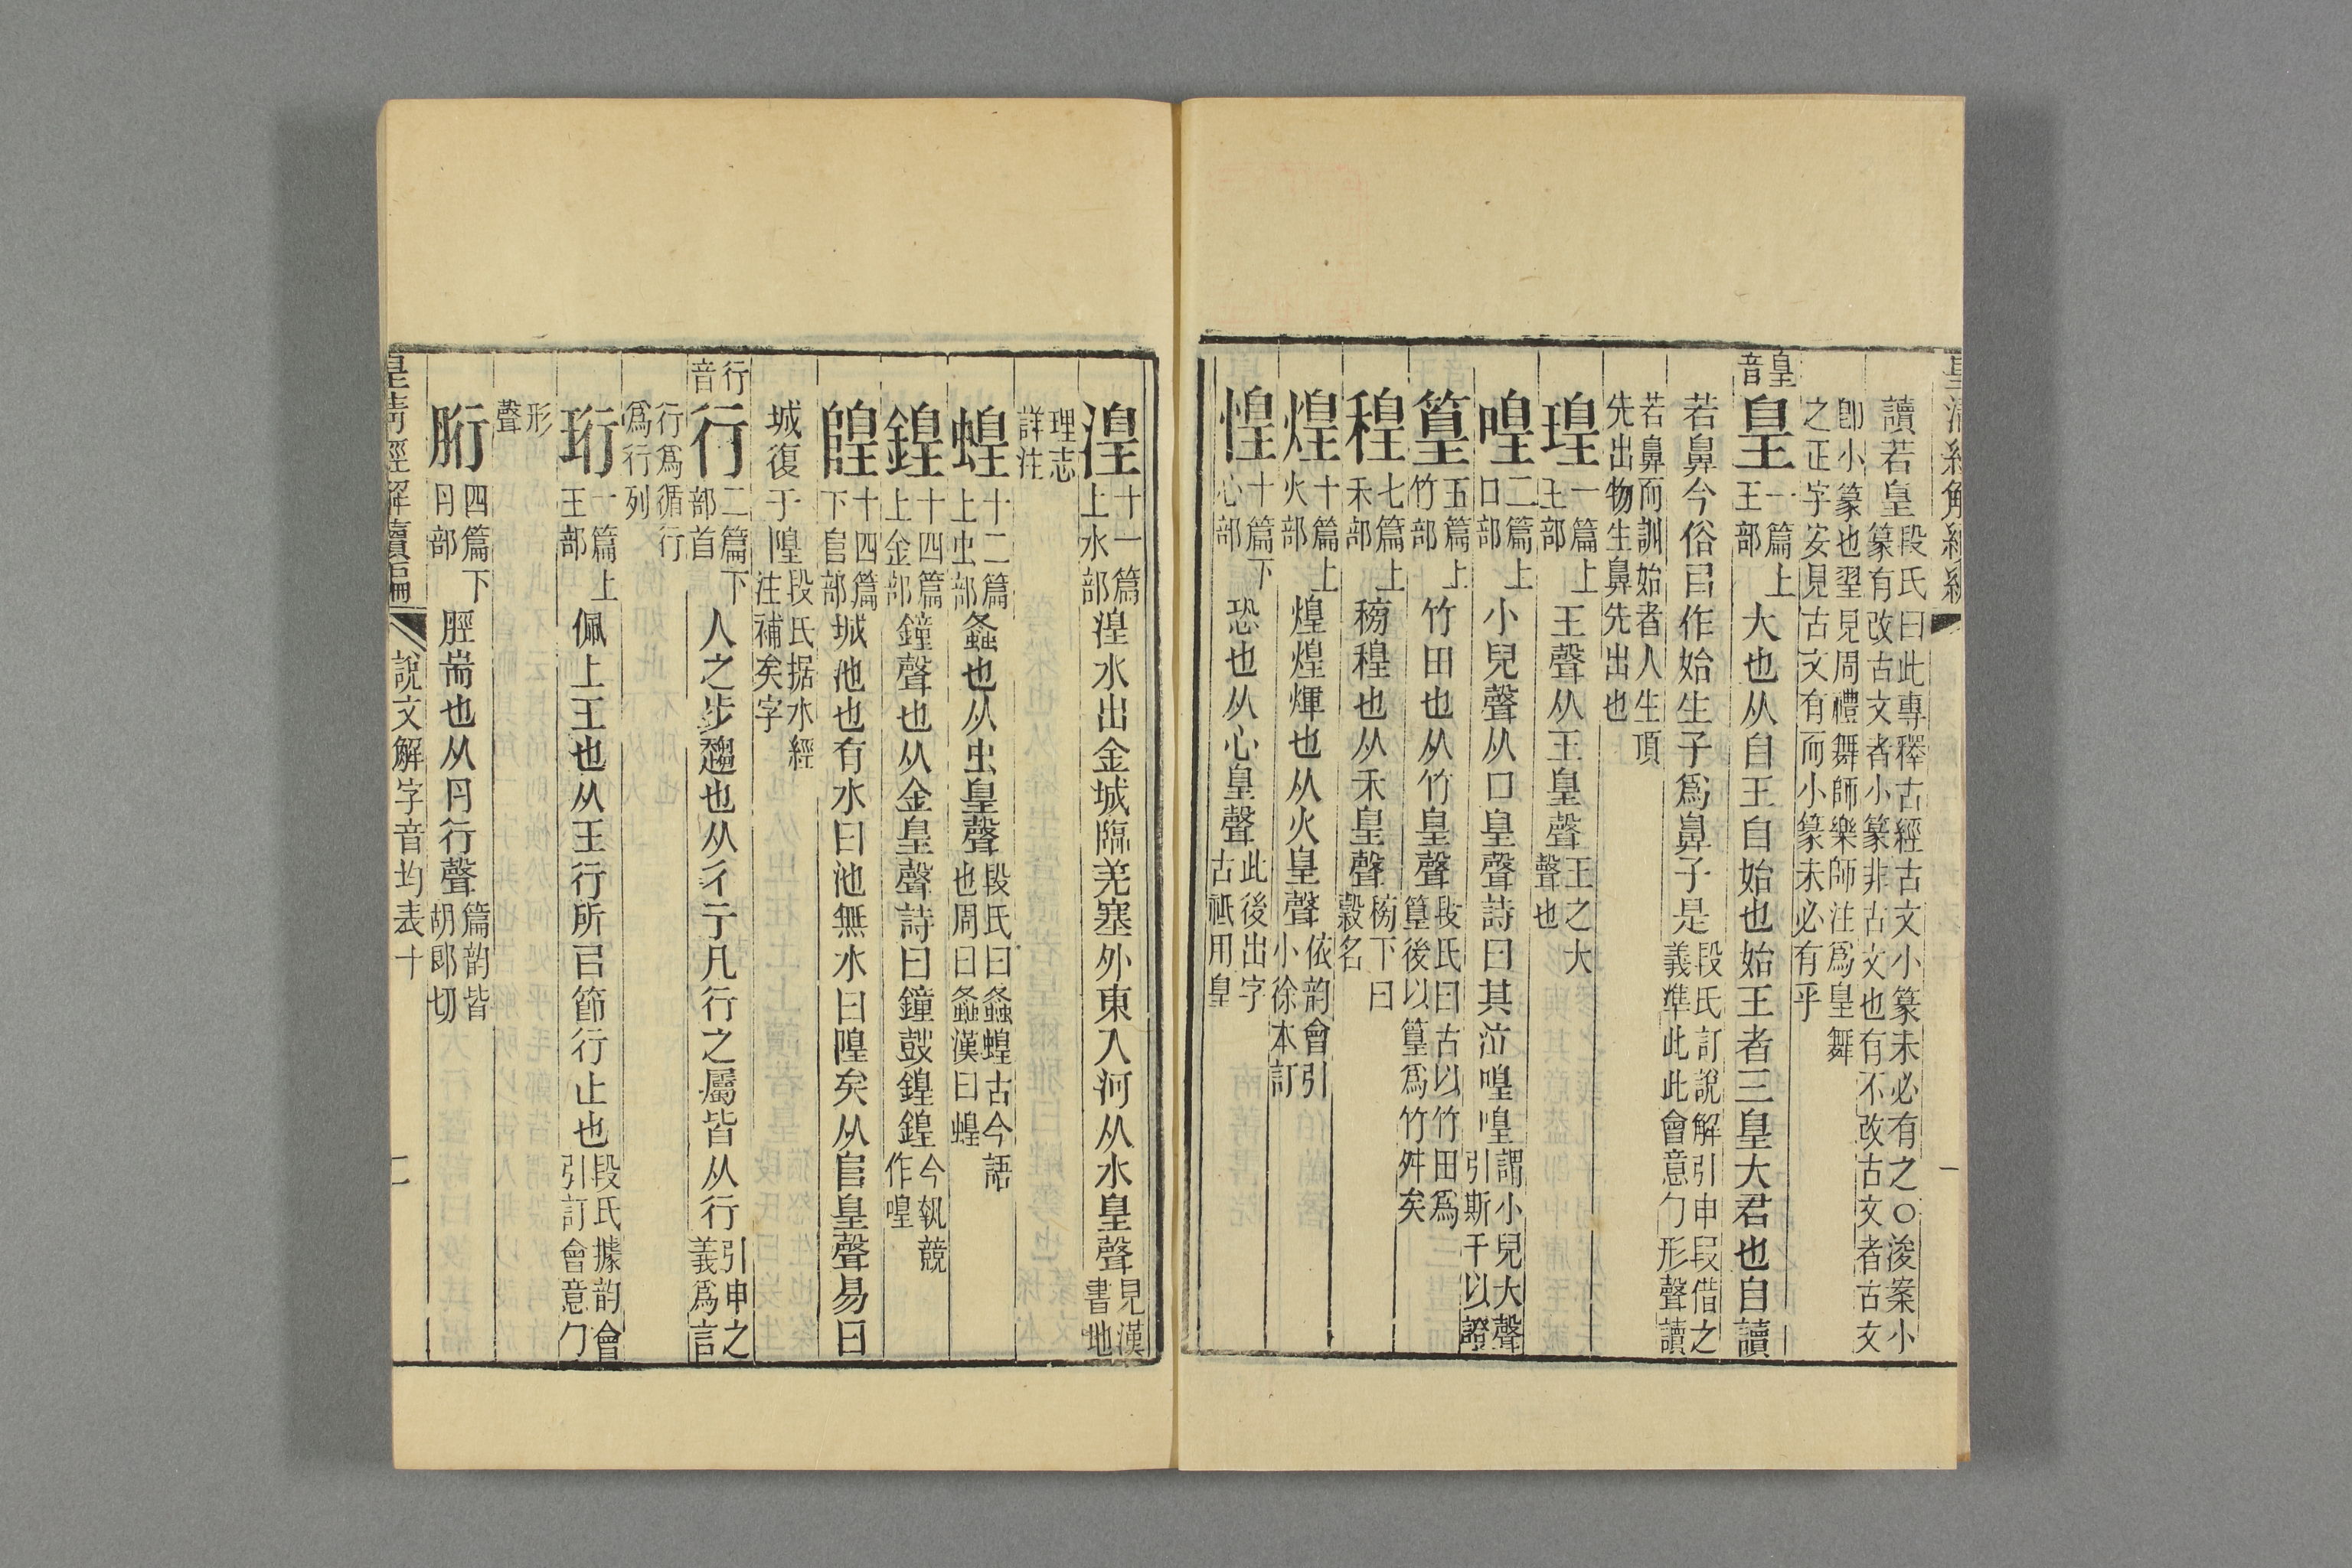 讀若皇段氏曰此專釋古經古文小篆未必有之○浚案小
篆有改古文者小篆非古文也有不改古文者古文
卽小篆也翌見周禮舞師樂師注爲皇舞
之正字安見古文有而小篆未必有乎
皇音
皇一篇上王部大也从自王自始也始王者三皇大君也自讀
若鼻今俗㠯作始生子爲鼻子是段氏訂說解引申叚借之
義準此此會意勹形聲讀
若鼻而訓始者人生頂
先出物生鼻先出也
瑝一篇上王部王聲从王皇聲王之大聲也
喤二篇上口部小兒聲从口皇聲詩曰其泣喤喤謂小兒大聲
引斯干以證
篁五篇上竹部竹田也从竹皇聲段氏曰古以竹田爲
篁後以篁爲竹舛矣
䅣七篇上禾部䅭䅣也从禾皇聲䅭下曰穀名
煌十篇上火部煌煌煇也从火皇聲依韵會引
小徐本訂
惶十篇下心部恐也从心皇聲此後出字
古祇用皇
湟十一篇上水部湟水出金城臨羌塞外東入河从水皇聲見漢書地
理志詳注
蝗十二篇上虫部螽也从虫皇聲段氏曰螽蝗古今語
也周曰螽漢曰蝗
鍠十四篇上金部鐘聲也从金皇聲詩曰鐘鼓鍠鍠今執競作喤
隍十四篇下𨸏部城池也有水曰池無水曰隍矣从𨸏皇聲易曰
城復于隍段氏据水經
注補矣字
行音
行二篇下部首人之步趨也从彳亍凡行之屬皆从行引申之義爲言
行爲循行
爲行列
珩一篇上王部佩上玉也从王行所㠯節行止也段氏據韵會
引訂會意勹
形聲
胻四篇下⺼部脛耑也从⺼行聲篇韵皆
胡郎切
皇淸經解續編 說文解字音均表十 二